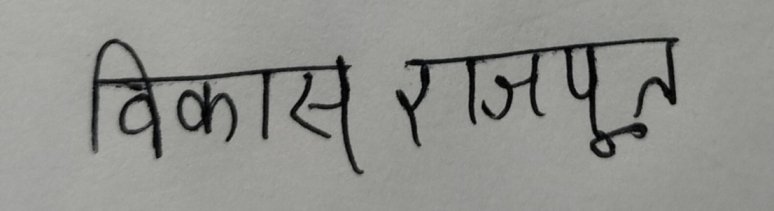 विकास राजपूत